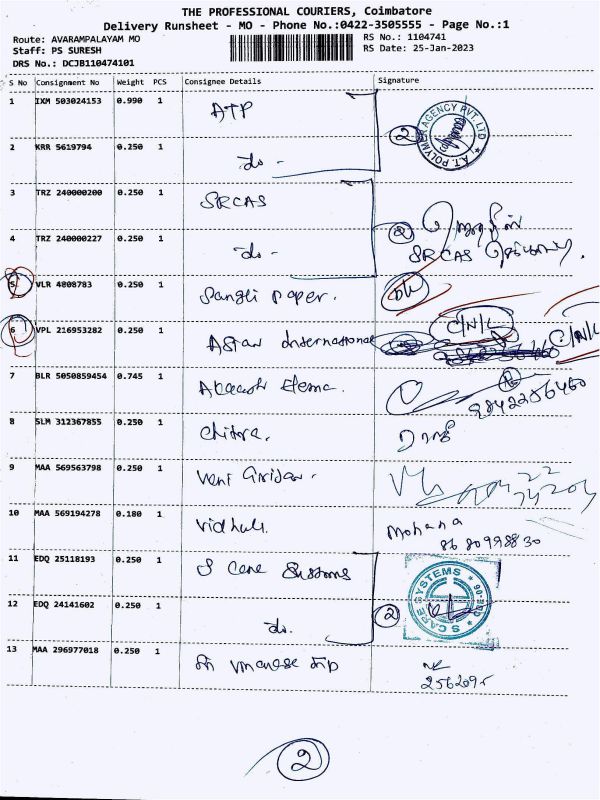 THE PROFESSIONAL COURIERS, Coimbatore
Delivery Runsheet - MO - Phone No.:0422-3505555 - Page No.:1
Route: AVARAMPALAYAM MO
RS No.: 1104741
Staff: PS SURESH
RS Date: 25-Jan-2023
DRS No.: DCJB110474101
S No Consignment No Weight PCS Consignee Details Signature
1 IXM 503024153 0.990 1 ATP
2 A.T. POLYMER AGENCY PVT. LTD
2 KRR 5619794 0.250 1 do -
3 TRZ 240000200 0.250 1 SRCAS
4 TRZ 240000227 0.250 1 do -
2 SRCAS
5 VLR 4808783 0.250 1 Sangli paper.
6 VPL 216953282 0.250 1 Astar International C/N/L C/N/L
7 BLR 5050859454 0.745 1
9842256460
8 SLM 312367855 0.250 1 Chitra.
9 MAA 569563798 0.250 1
10 MAA 569194278 0.180 1 Mohana
8680998830
11 EDQ 25118193 0.250 1 S Care Systems
S CARE SYSTEMS
12 EDQ 24141602 0.250 1 do. 2
13 MAA 296977018 0.250 1
2